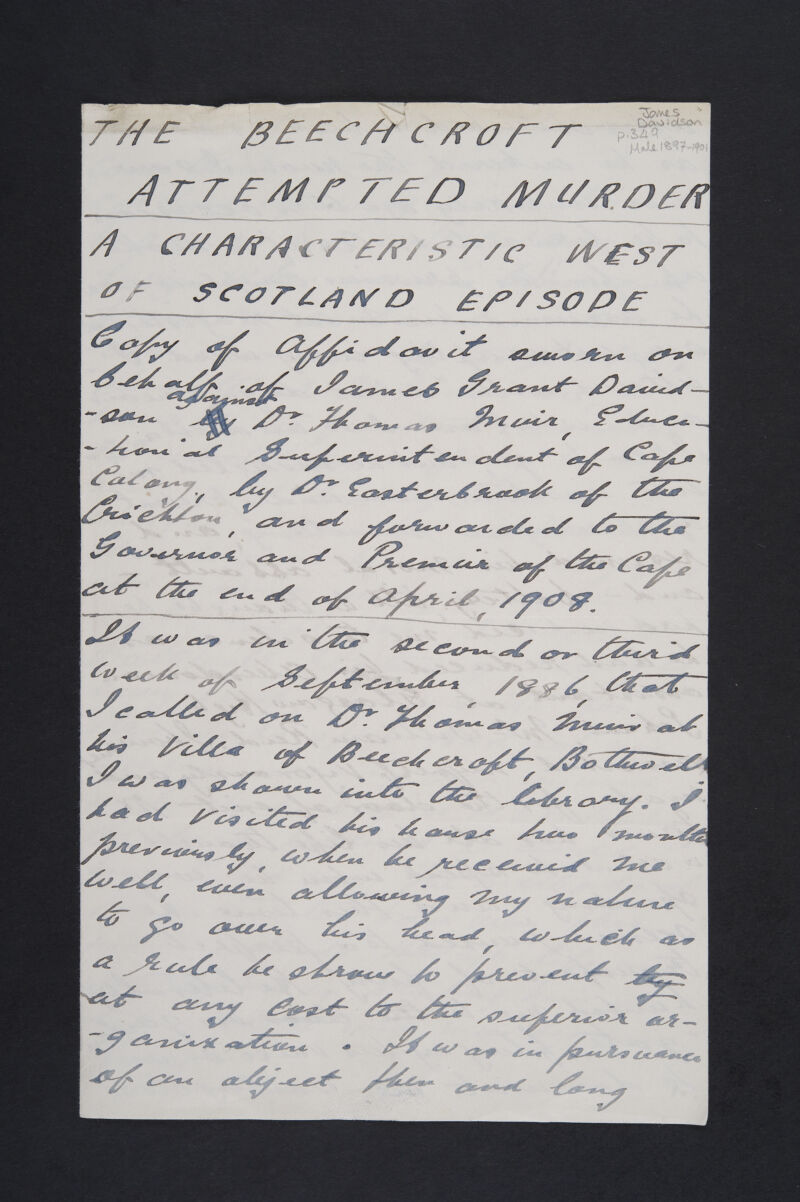 James
Davidson
p.349
Male 1897-1901
THE BEECHCROFT
ATTEMPTED MURDER
A CHARACTERISTIC WEST
OF SCOTLAND EPISODE
Copy of Affidavit sworn on
behalf of James Grant David-
against
-son by Dr. Thomas Muir, Educa-
-tional Superintendent of Cape
Colony, by Dr. Easterbrook of the
Crichton, and forwarded to the
Governor and Premier of the Cape
at the end of April, 1908.
It was in the second or third
week of September, 1886, that
I called on Dr. Thomas Muir at
his Villa of Beechcroft, Bothwell
I was shown into the library. I
had visited his house two months
previously, when he received me
well, even allowing my nature
to go over his head, which as
a rule he strove to prevent by
at any cost to the superior or-
-ganization. It was in pursuance
of an object then and long